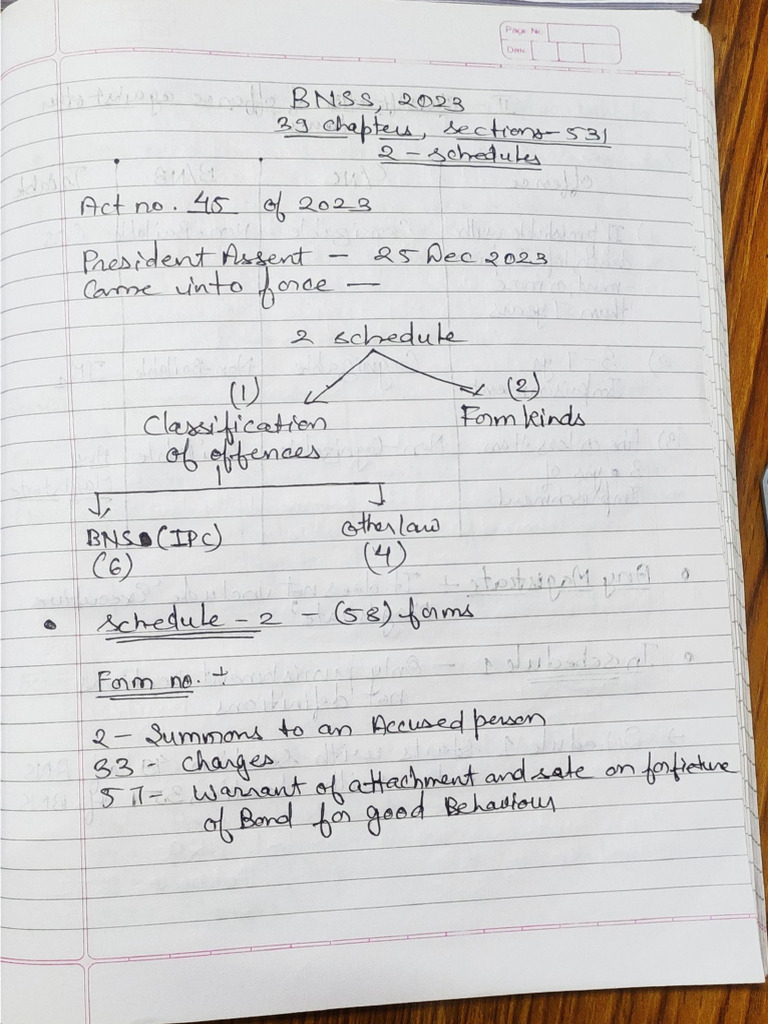 Page No.
Date
BNSS, 2023
39 chapters, sections - 531
2 - schedules
Act no. 45 of 2023
President Assent - 25 Dec 2023
Came into force -
2 schedule
(1) (2)
Classification Form kinds
of offences
BNS (IPC) other law
(6) (4)
schedule - 2 - (58) forms
Form no. :-
2 - Summons to an Accused person
33 :- Charges
57 :- Warrant of attachment and sale on forfieture
of Bond for good Behaviour